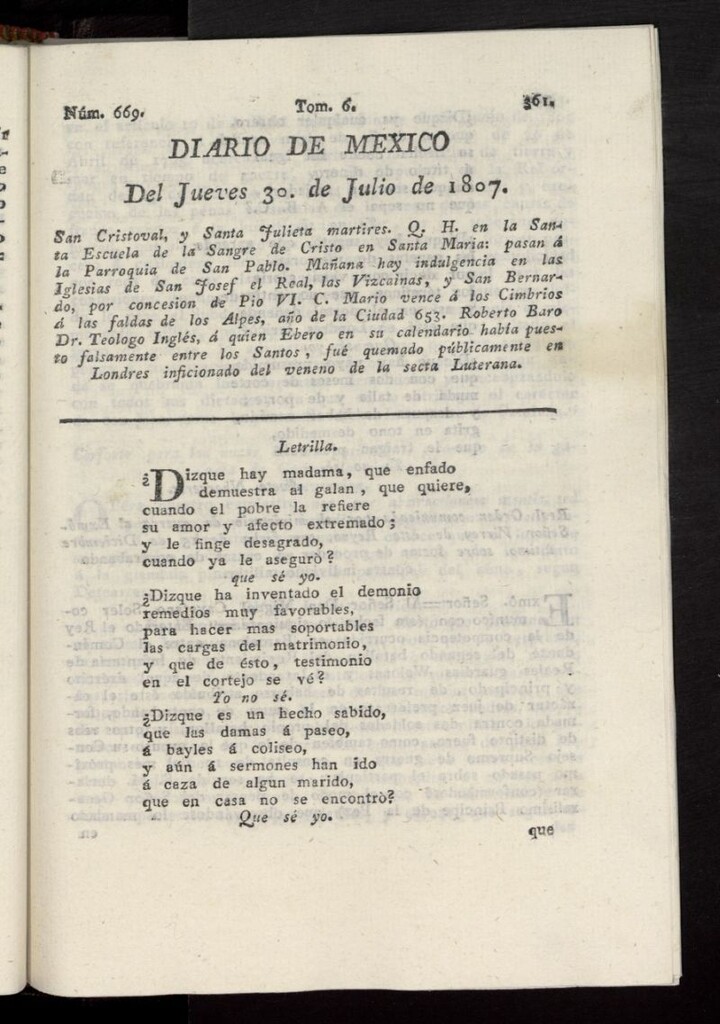 Núm. 669. Tom. 6. 361.
DIARIO DE MEXICO
Del Jueves 30. de Julio de 1807.
San Cristoval, y Santa Julieta martires. Q. H. en la San-
ta Escuela de la Sangre de Cristo en Santa Maria: pasan á
la Parroquia de San Pablo. Mañana hay indulgencia en las
Iglesias de San Josef el Real, las Vizcainas, y San Bernar-
do, por concesion de Pio VI. C. Mario vence á los Cimbrios
á las faldas de los Alpes, año de la Ciudad 653. Roberto Baro
Dr. Teologo Inglés, á quien Ebero en su calendario había pues-
to falsamente entre los Santos, fué quemado públicamente en
Londres inficionado del veneno de la secta Luterana.
Letrilla.
¿Dizque hay madama, que enfado
demuestra al galan, que quiere,
cuando el pobre la refiere
su amor y afecto extremado;
y le finge desagrado,
cuando ya le aseguró?
que sé yo.
¿Dizque ha inventado el demonio
remedios muy favorables,
para hacer mas soportables
las cargas del matrimonio,
y que de ésto, testimonio
en el cortejo se vé?
Yo no sé.
¿Dizque es un hecho sabido,
que las damas á paseo,
á bayles á coliseo,
y aún á sermones han ido
á caza de algun marido,
que en casa no se encontrò?
Que sé yo.
que